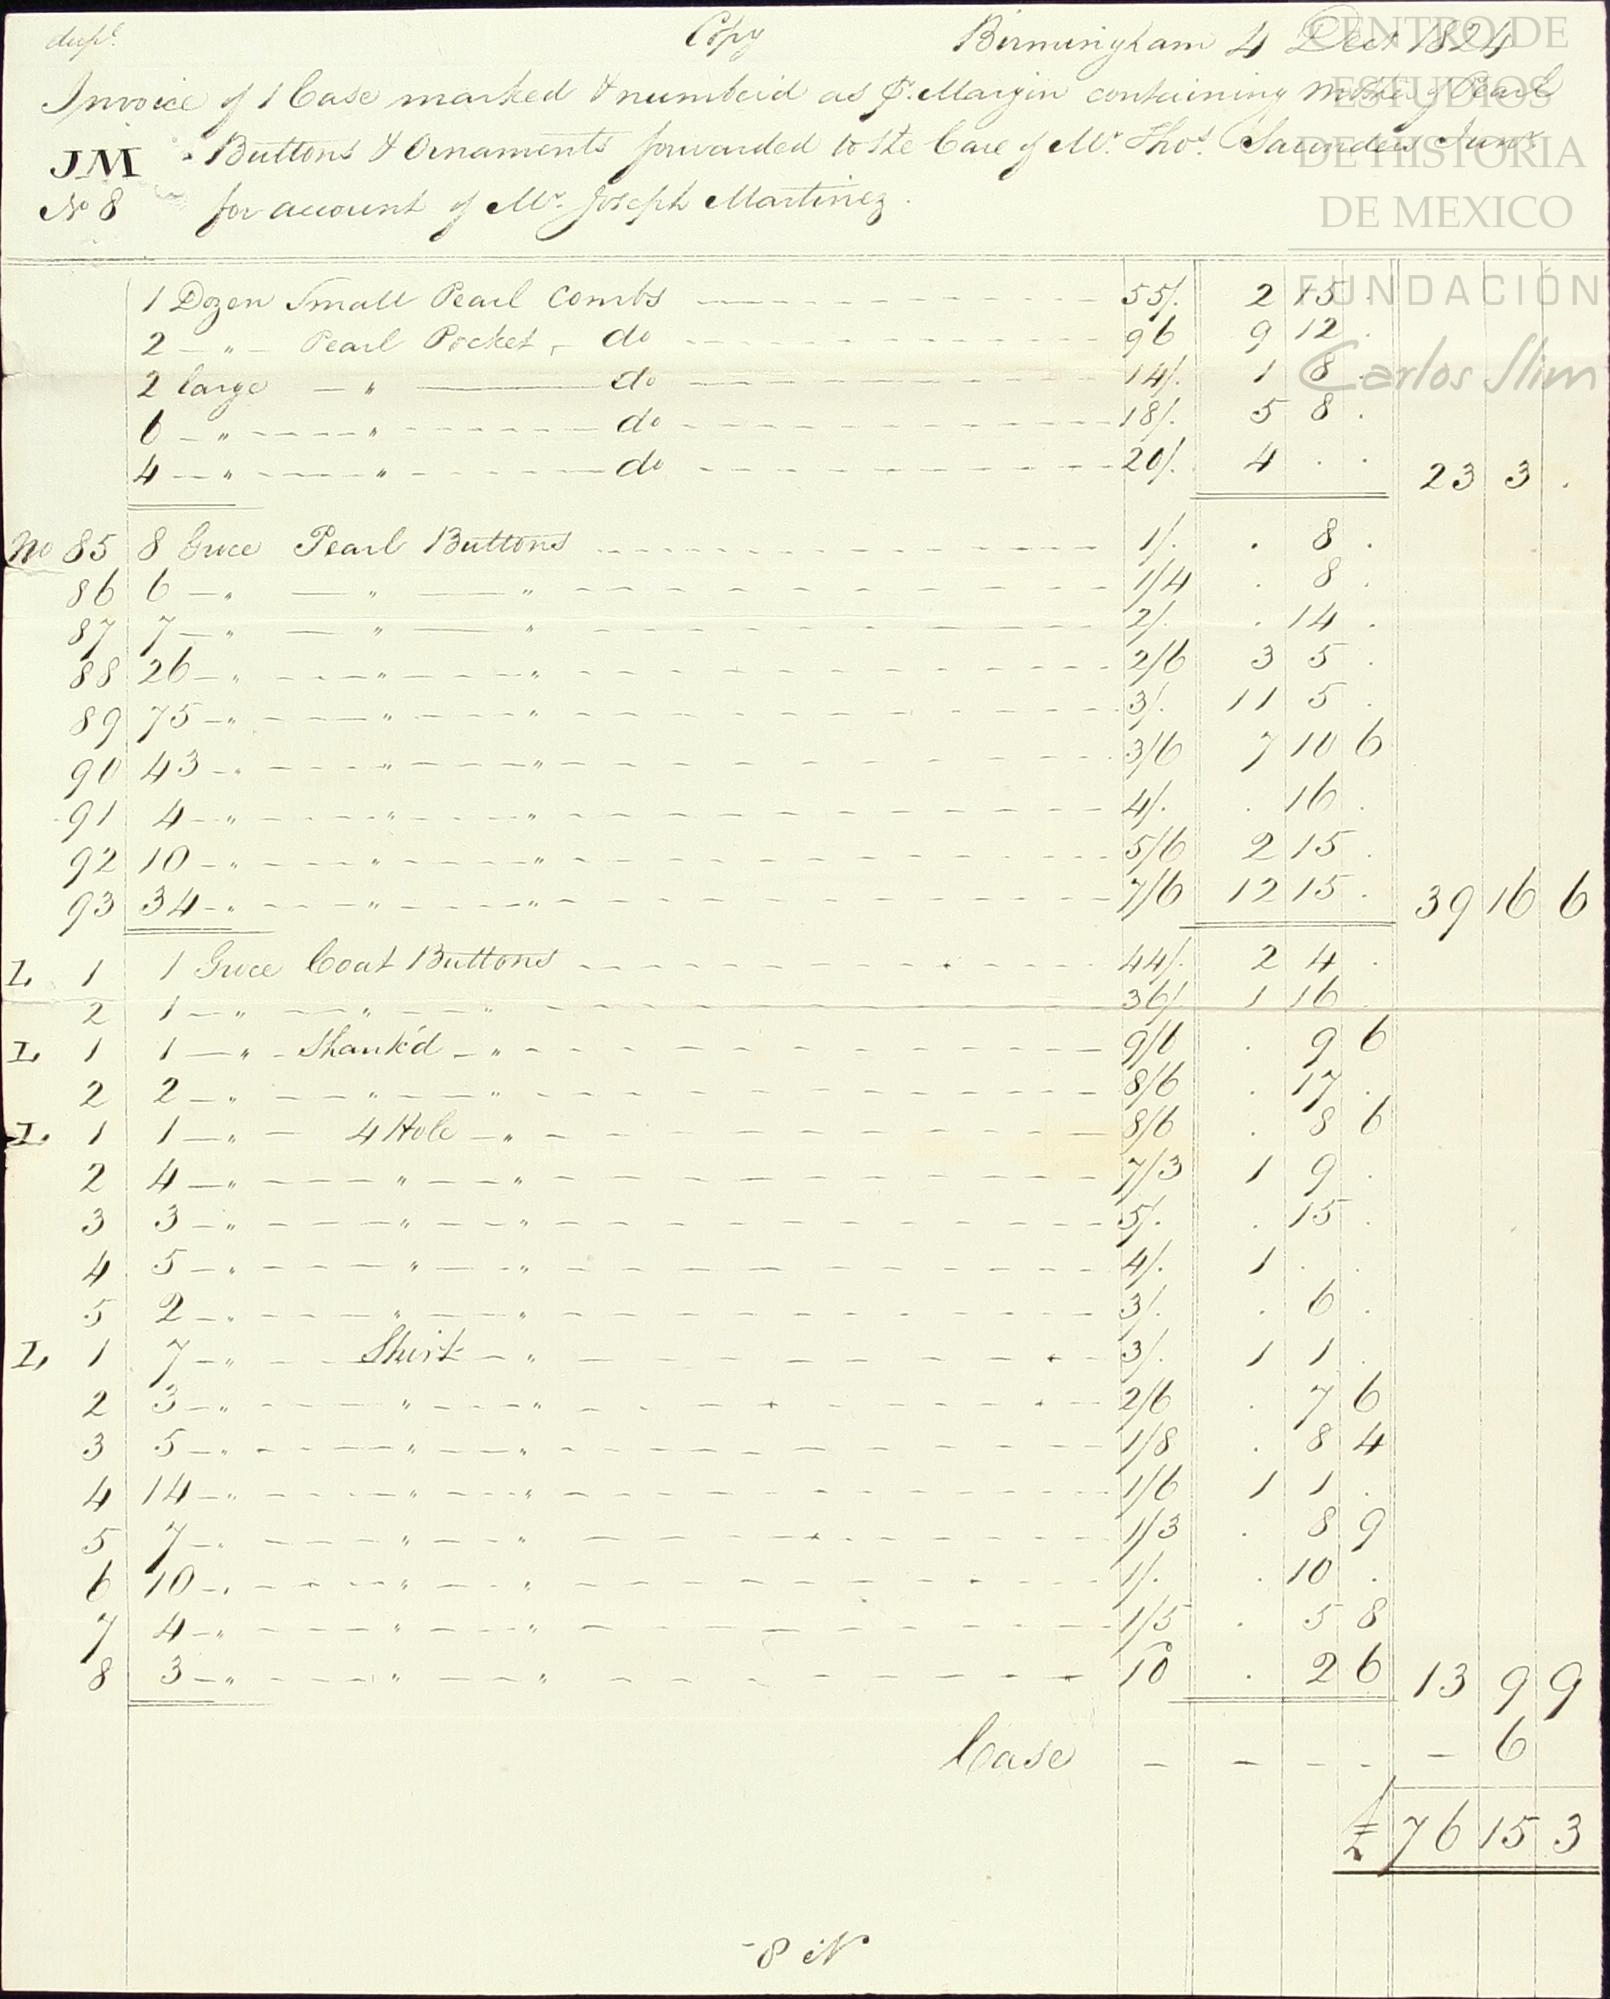 dupe. Copy Birmingham 4 Decr 1824
Invoice of 1 Case marked & numberd as pr. Margin containing Mother of Pearl
JM Buttons & Ornaments forwarded to the Care of Mr. Thos. Saunders Junr
No 8 for account of Mr. Joseph Martinez.
1 Dozen Small Pearl Combs 55/. 2 15 .
2 — " — Pearl Pocket do 96 9 12 .
2 large — " — do 14/. 1 8 .
6 — " — " — do 18/. 5 8 .
4 — " — " — do 20/. 4 . . 23 3 .
No 85 8 Groce Pearl Buttons 1/. . 8 .
86 6 — " — " — " 1/4 . 8 .
87 7 — " — " — " 2/. . 14 .
88 26 — " — " — " 2/6 3 5 .
89 75 — " — " — " 3/. 11 5 .
90 43 — " — " — " 3/6 7 10 6
91 4 — " — " — " 4/. . 16 .
92 10 — " — " — " 5/6 2 15 .
93 34 — " — " — " 7/6 12 15 . 39 16 6
L 1 1 Groce Coat Buttons 44/. 2 4 .
2 1 — " — " — " 36/. 1 16 .
L 1 1 — " — Shank'd — " 9/6 . 9 6
2 2 — " — " — " 8/6 . 17 .
L 1 1 — " — 4 Hole — " 8/6 . 8 6
2 4 — " — " — " 7/3 1 9 .
3 3 — " — " — " 5/. . 15 .
4 5 — " — " — " 4/. 1 . .
5 2 — " — " — " 3/. . 6 .
L 1 7 — " — Shirt — " 3/. 1 1 .
2 3 — " — " — " 2/6 . 7 6
3 5 — " — " — " 1/8 . 8 4
4 14 — " — " — " 1/6 1 1 .
5 7 — " — " — " 1/3 . 8 9
6 10 — " — " — " 1/. . 10 .
7 4 — " — " — " 1/5 . 5 8
8 3 — " — " — " 10 . 2 6 13 9 9
Case — — — — — 6
£ 76 15 3
N 8
CENTRO DE
ESTUDIOS
DE HISTORIA
DE MEXICO
FUNDACIÓN
Carlos Slim